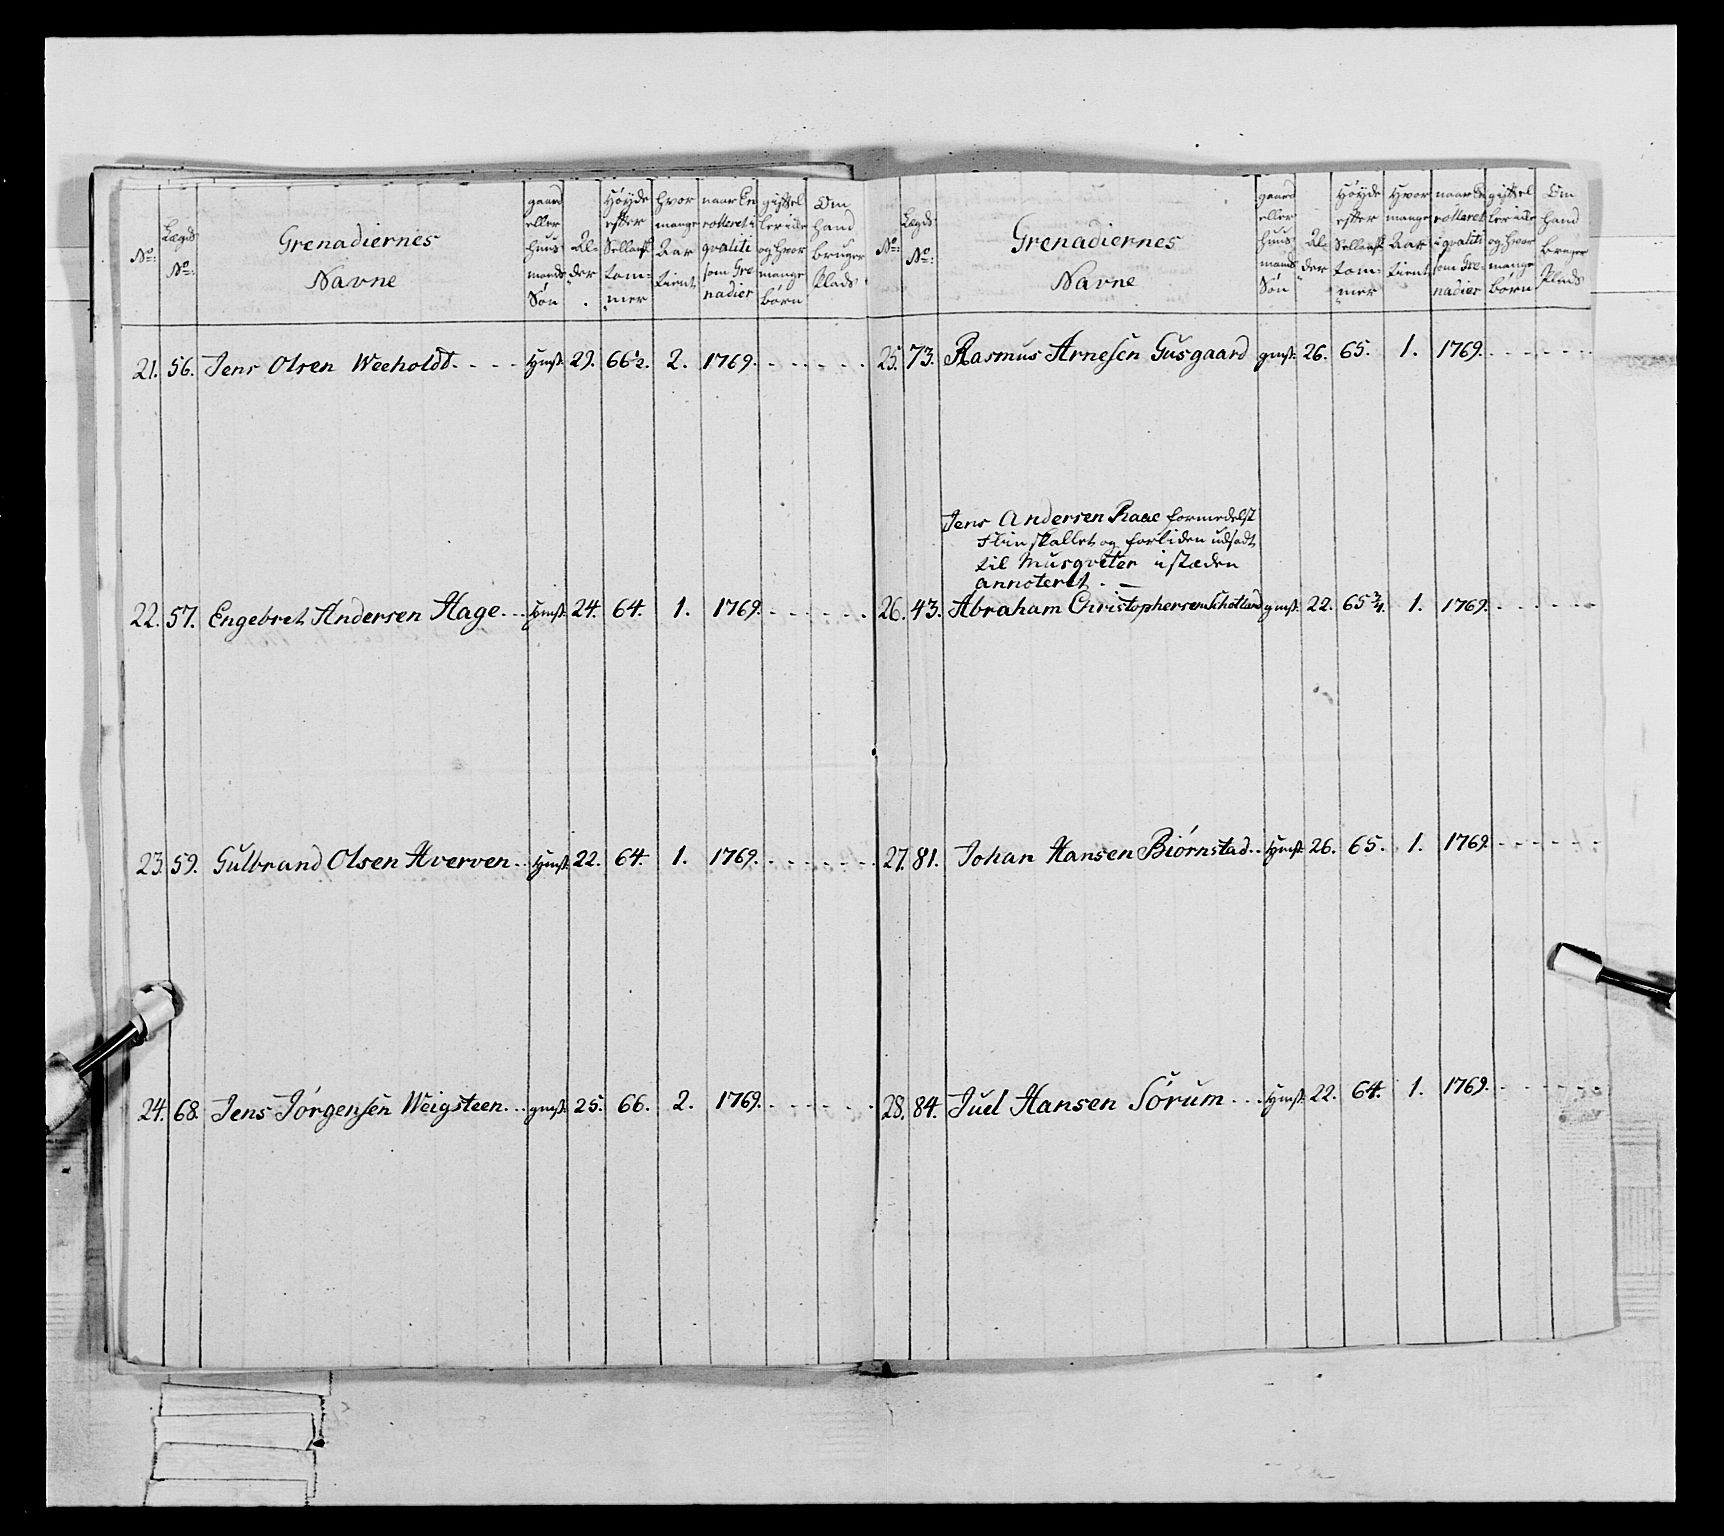 No:
Lægds No:
Grenadiernes Navne
gaard eller huusmands Søn
Alder
Høyde efter Sellansk tommer
hvor mange Aar tient
naar Enrolleret i qvaliti som Grenadier
gift eller ei og hvor mange børn
Om hand bruger Plads
21. 56. Jens Olsen Weeholdt. Hmsß. 29. 66½. 2. 1769.
22. 57. Engebret Andersen Hage Hmsß. 24. 64. 1. 1769.
23. 59. Gulbrand Olsen Averven Hmsß. 22. 64. 1. 1769.
24. 68. Jens Jørgensen Weigsteen gmsß. 25. 66. 2. 1769.
No:
Lægds No:
Grenadiernes Navne
gaard eller huusmands Søn
Alder
Høyde efter Sellansk tommer
Hvor mange Aar tient
naar Enrolleret i qvaliti som Grenadier
og hvor mange børn
Om hand bruger Plads
25. 73. Rasmus Arnesen Gusgaard gmsß. 26. 65. 1. 1769.
Jens Andersen Raae formedelst
skallet og forliden udsadt
til Musqveter i stæden
annoteret. —
26. 43. Abraham Christophersen Schotland gmsß. 22. 65¾. 1. 1769.
27. 81. Johan Hansen Biørnstad Hmsß. 26. 65. 1. 1769.
28. 84. Juel Hansen Sörum Hmsß. 22. 64. 1. 1769.